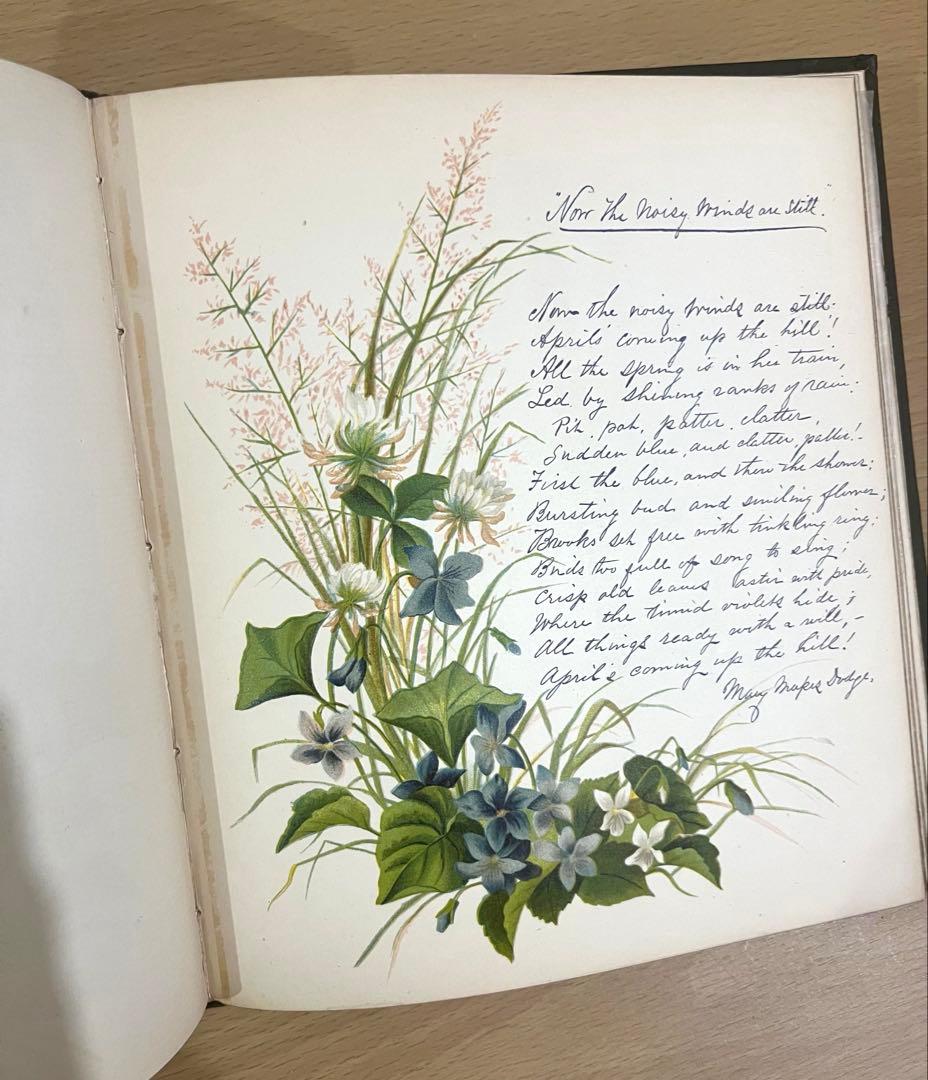 "Now the Noisy Winds are Still."
Now the noisy winds are still;
April's coming up the hill!
All the spring is in her train,
Led by shining ranks of rain:
Pit, pat, patter, clatter,
Sudden blue, and clatter, patter! -
First the blue, and then the shower;
Bursting bud and smiling flower;
Brooks set free with tinkling ring;
Birds too full of song to sing;
Crisp old leaves astir with pride,
Where the timid violets hide; -
All things ready with a will, -
April's coming up the hill!
Mary Mapes Dodge.